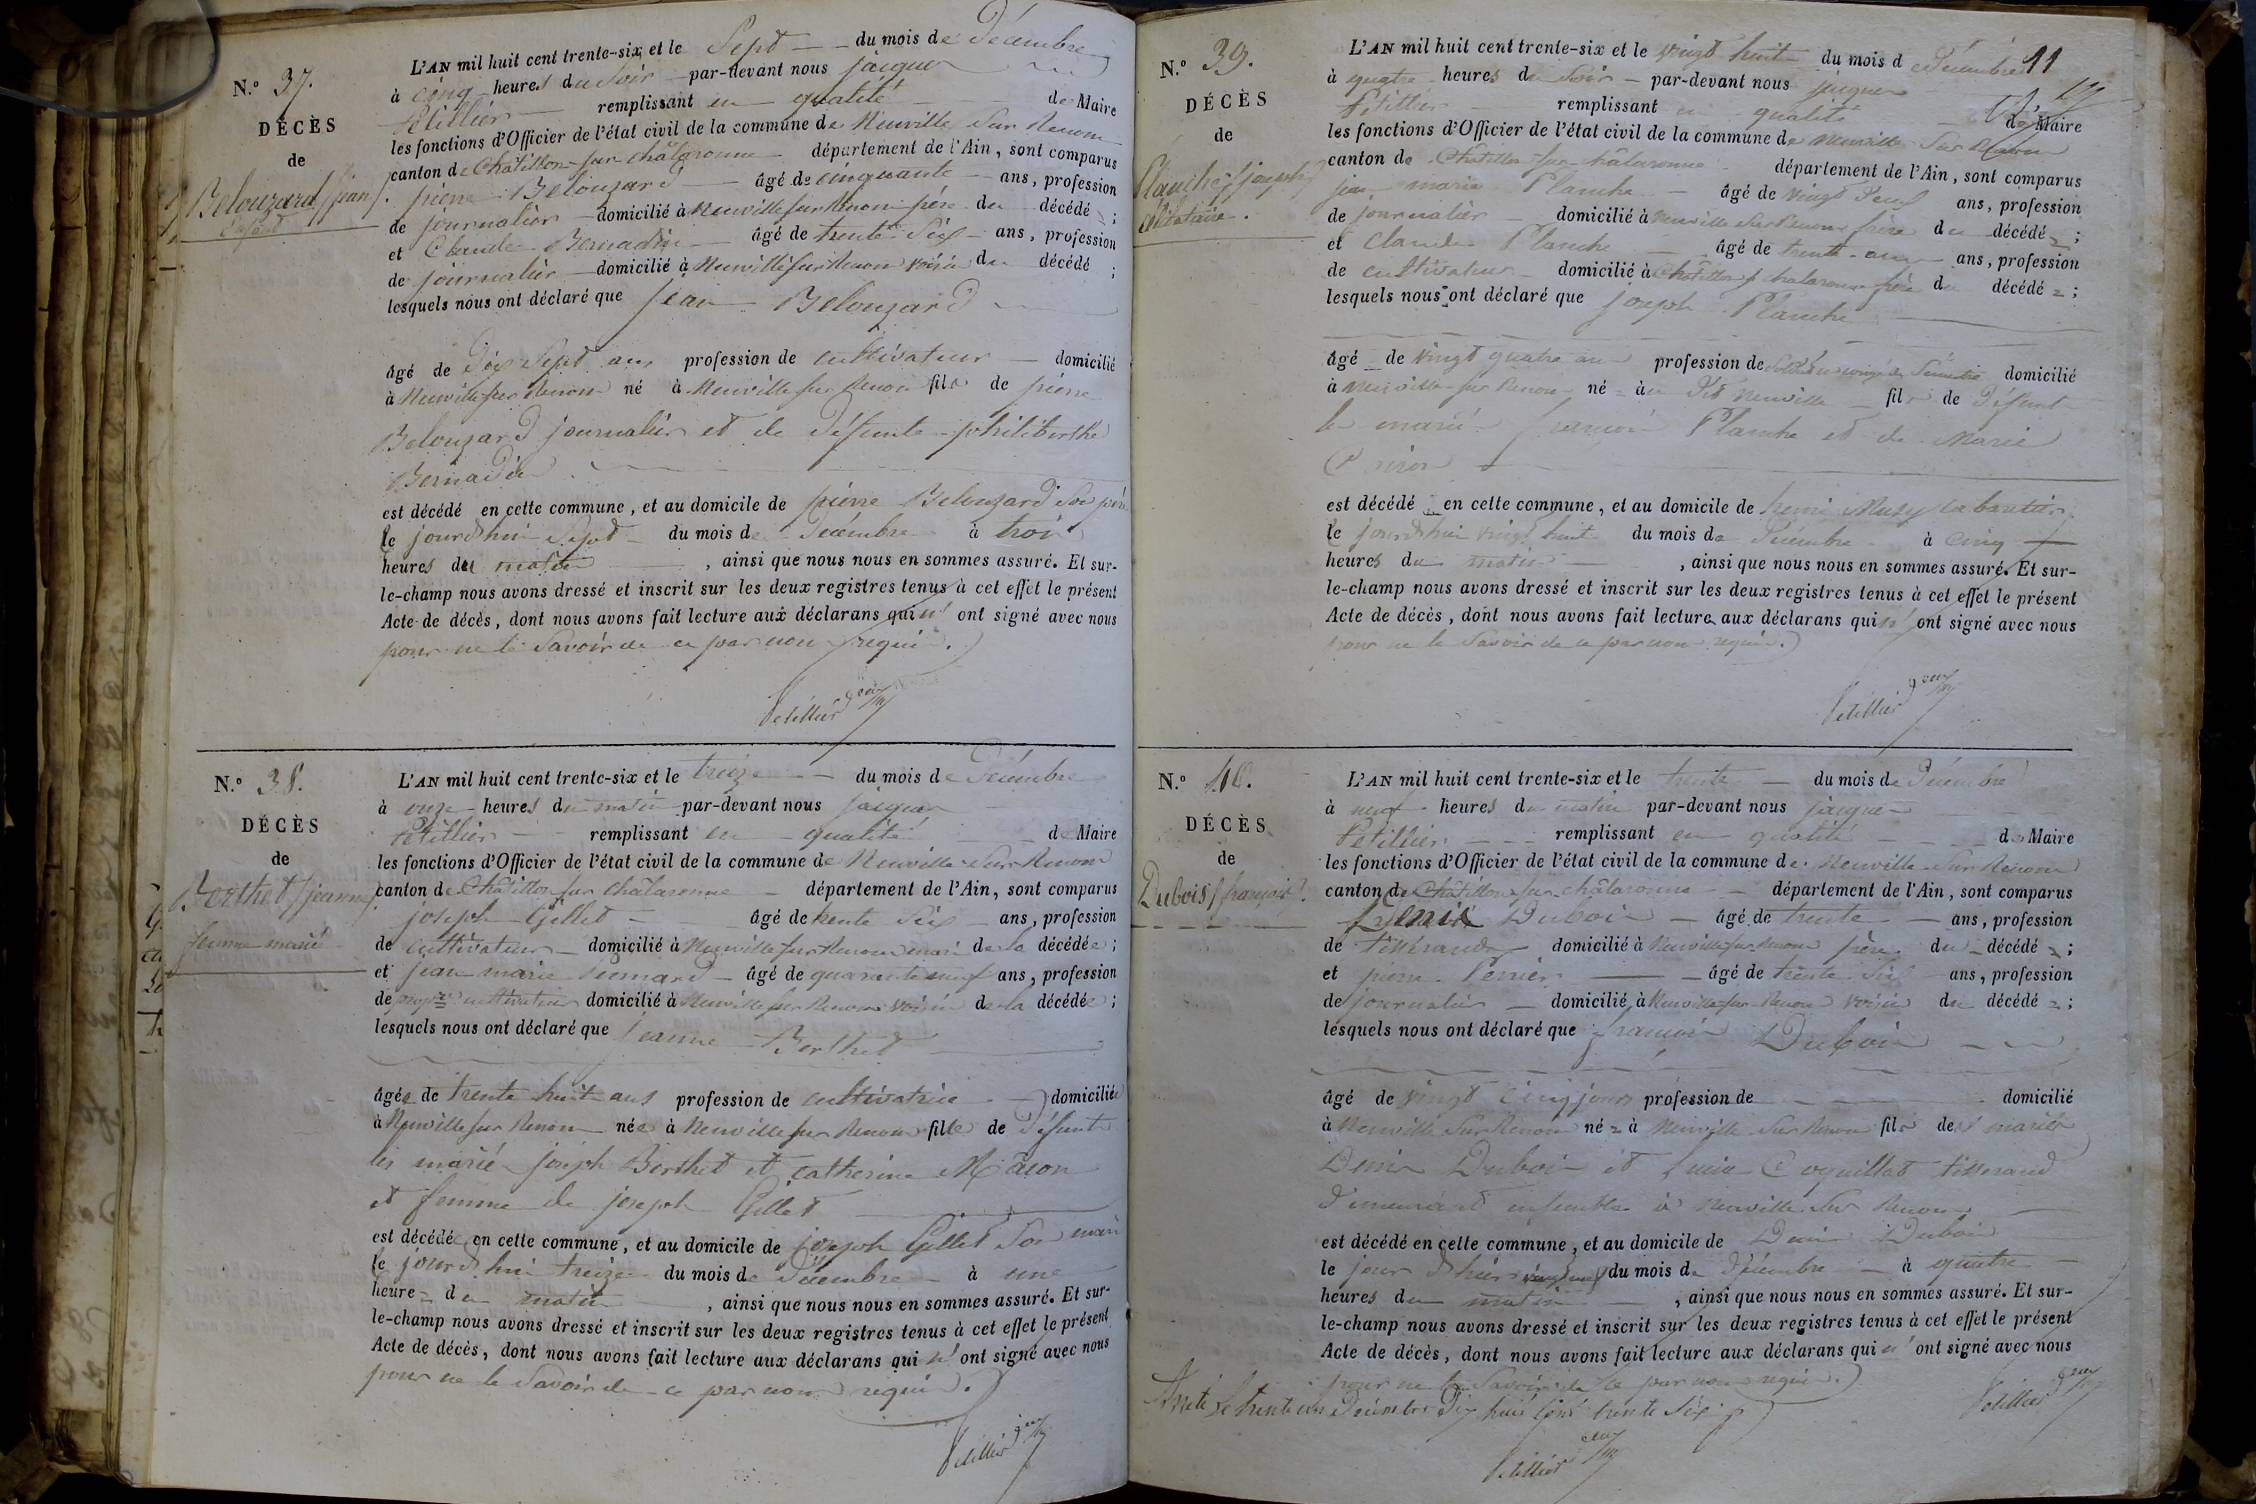 N.º 37.
DÉCÈS
de
Belouzard (jean).
enfant
L'AN mil huit cent trente-six et le Sept du mois de Décembre
à cinq heures du Soir par-devant nous jacques
Petillier remplissant en qualité de Maire
les fonctions d'Officier de l'état civil de la commune de Neuville Sur Renom
canton de Châtillon sur châlaronne département de l'Ain, sont comparus
pierre Belouzard âgé de cinquante ans, profession
de journalier domicilié à Neuville sur Renom père du décédé ;
et Claude Bernadin âgé de trente Six ans, profession
de journalier domicilié à Neuville sur Renom voisin du décédé ;
lesquels nous ont déclaré que jean Belouzard
âgé de Dix Sept ans profession de cultivateur domicilié
à Neuville sur Renom né à Neuville sur Renom fils de pierre
Belouzard journalier et de Défunte philiberthe
Bernadin
est décédé en cette commune, et au domicile de pierre Belouzard Son père
le jourd'hui Sept du mois de Décembre à trois
heures du matin , ainsi que nous nous en sommes assuré. Et sur-
le-champ nous avons dressé et inscrit sur les deux registres tenus à cet effet le présent
Acte de décès, dont nous avons fait lecture aux déclarans qui n' ont signé avec nous
pour ne le Savoir de ce par nous requis.
Petillier
N.º 38.
DÉCÈS
de
Berthet (jeanne)
femme marié
L'AN mil huit cent trente-six et le treize du mois de Décembre
à onze heures du matin par-devant nous jacques
Petillier remplissant en qualité de Maire
les fonctions d'Officier de l'état civil de la commune de Neuville Sur Renom
canton de Châtillon sur châlaronne département de l'Ain, sont comparus
joseph Gillet âgé de trente Six ans, profession
de cultivateur domicilié à Neuville sur Renom mari de la décédée ;
et jean marie âgé de quarante neuf ans, profession
de propre cultivateur domicilié à Neuville sur Renom voisin de la décédée ;
lesquels nous ont déclaré que jeanne Berthet
âgée de trente huit ans profession de cultivatrice domiciliée
à Neuville sur Renom née à Neuville sur Renom fille de Défunts
les mariés joseph Berthet et catherine Mâcon
et femme de joseph Gillet
est décédée en cette commune, et au domicile de joseph Gillet Son mari
le jourd'hui treize du mois de Décembre à une
heure du matin , ainsi que nous nous en sommes assuré. Et sur-
le-champ nous avons dressé et inscrit sur les deux registres tenus à cet effet le présent
Acte de décès, dont nous avons fait lecture aux déclarans qui n' ont signé avec nous
pour ne le Savoir de ce par nous requis.
Petillier
11
N.º 39.
DÉCÈS
de
Planche (joseph)
célibataire.
L'AN mil huit cent trente-six et le vingt huit du mois de Décembre
à quatre heures du Soir par-devant nous jacques
Petillier remplissant en qualité de Maire
les fonctions d'Officier de l'état civil de la commune de Neuville Sur Renom
canton de Châtillon sur châlaronne département de l'Ain, sont comparus
jean marie Planche âgé de vingt neuf ans, profession
de journalier domicilié à Neuville Sur Renom frère du décédé ;
et Claude Planche âgé de trente ans, profession
de cultivateur domicilié à Châtillon s. chalaronne frère du décédé ;
lesquels nous ont déclaré que joseph Planche
âgé de vingt quatre ans profession de Soldat en congé de Semestre domicilié
à Neuville sur Renom né au Dit Neuville fils de Défunt
le marié françois Planche et de Marie
est décédé en cette commune, et au domicile de henri Musy cabaretier
le jourd'hui vingt huit du mois de Décembre à cinq
heures du matin , ainsi que nous nous en sommes assuré. Et sur-
le-champ nous avons dressé et inscrit sur les deux registres tenus à cet effet le présent
Acte de décès, dont nous avons fait lecture aux déclarans qui n' ont signé avec nous
pour ne le Savoir de ce par nous requis.
Petillier
N.º 40.
DÉCÈS
de
Dubois (françois).
L'AN mil huit cent trente-six et le trente du mois de Décembre
à neuf heures du matin par-devant nous jacques
Petillier remplissant en qualité de Maire
les fonctions d'Officier de l'état civil de la commune de Neuville Sur Renom
canton de Châtillon sur châlaronne département de l'Ain, sont comparus
Denis Dubois âgé de trente ans, profession
de tisserand domicilié à Neuville sur Renom père du décédé ;
et pierre Perrier âgé de trente Six ans, profession
de journalier domicilié à Neuville sur Renom voisin du décédé ;
lesquels nous ont déclaré que françois Dubois
âgé de vingt cinq jours profession de domicilié
à Neuville Sur Renom né à Neuville Sur Renom fils des mariés
Denis Dubois et Coquillat tisserand
Demeurant ensemble à Neuville Sur Renom
est décédé en cette commune, et au domicile de Denis Dubois
le jour D'hier vingt neuf du mois de Décembre à quatre
heures du matin , ainsi que nous nous en sommes assuré. Et sur-
le-champ nous avons dressé et inscrit sur les deux registres tenus à cet effet le présent
Acte de décès, dont nous avons fait lecture aux déclarans qui n' ont signé avec nous
pour ne le Savoir de ce par nous requis.
Petillier
Arrêté le trente un Décembre Dix huit Cent trente Six
Petillier